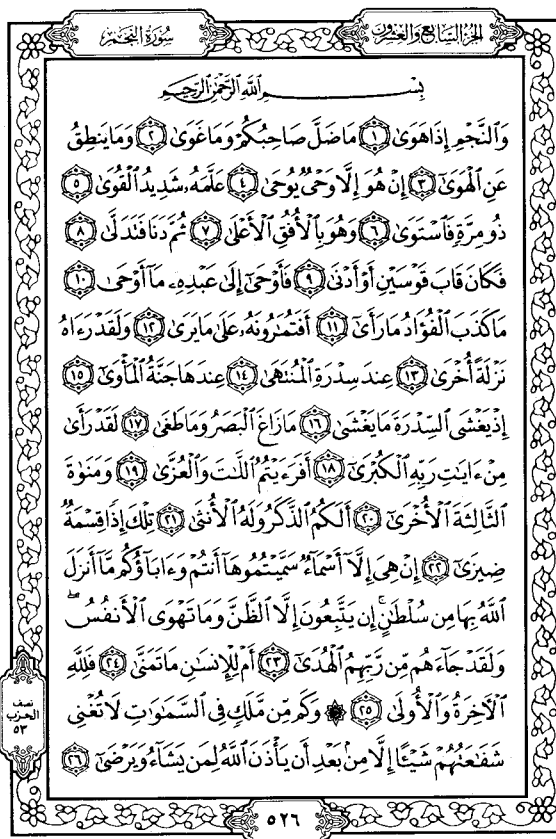 الجزء السابع والعشرون
سورة النجم
بِسْمِ اللَّهِ الرَّحْمَٰنِ الرَّحِيمِ
وَالنَّجْمِ إِذَا هَوَىٰ ١ مَا ضَلَّ صَاحِبُكُمْ وَمَا غَوَىٰ ٢ وَمَا يَنطِقُ
عَنِ الْهَوَىٰٓ ٣ إِنْ هُوَ إِلَّا وَحْيٌ يُوحَىٰ ٤ عَلَّمَهُۥ شَدِيدُ الْقُوَىٰ ٥
ذُو مِرَّةٍ فَاسْتَوَىٰ ٦ وَهُوَ بِالْأُفُقِ الْأَعْلَىٰ ٧ ثُمَّ دَنَا فَتَدَلَّىٰ ٨
فَكَانَ قَابَ قَوْسَيْنِ أَوْ أَدْنَىٰ ٩ فَأَوْحَىٰٓ إِلَىٰ عَبْدِهِۦ مَآ أَوْحَىٰ ١٠
مَا كَذَبَ الْفُؤَادُ مَا رَأَىٰٓ ١١ أَفَتُمَٰرُونَهُۥ عَلَىٰ مَا يَرَىٰ ١٢ وَلَقَدْ رَءَاهُ
نَزْلَةً أُخْرَىٰ ١٣ عِندَ سِدْرَةِ الْمُنتَهَىٰ ١٤ عِندَهَا جَنَّةُ الْمَأْوَىٰٓ ١٥
إِذْ يَغْشَى السِّدْرَةَ مَا يَغْشَىٰ ١٦ مَا زَاغَ الْبَصَرُ وَمَا طَغَىٰ ١٧ لَقَدْ رَأَىٰ
مِنْ ءَايَٰتِ رَبِّهِ الْكُبْرَىٰٓ ١٨ أَفَرَءَيْتُمُ اللَّٰتَ وَالْعُزَّىٰ ١٩ وَمَنَوٰةَ
الثَّالِثَةَ الْأُخْرَىٰٓ ٢٠ أَلَكُمُ الذَّكَرُ وَلَهُ الْأُنثَىٰ ٢١ تِلْكَ إِذًا قِسْمَةٌ
ضِيزَىٰٓ ٢٢ إِنْ هِىَ إِلَّآ أَسْمَآءٌ سَمَّيْتُمُوهَآ أَنتُمْ وَءَابَآؤُكُم مَّآ أَنزَلَ
اللَّهُ بِهَا مِن سُلْطَٰنٍ ۚ إِن يَتَّبِعُونَ إِلَّا الظَّنَّ وَمَا تَهْوَى الْأَنفُسُ ۖ
وَلَقَدْ جَآءَهُم مِّن رَّبِّهِمُ الْهُدَىٰٓ ٢٣ أَمْ لِلْإِنسَٰنِ مَا تَمَنَّىٰ ٢٤ فَلِلَّهِ
الْـَٔاخِرَةُ وَالْأُولَىٰ ٢٥ ۞ وَكَم مِّن مَّلَكٍ فِى السَّمَٰوَٰتِ لَا تُغْنِى
شَفَٰعَتُهُمْ شَيْـًٔا إِلَّا مِنۢ بَعْدِ أَن يَأْذَنَ اللَّهُ لِمَن يَشَآءُ وَيَرْضَىٰٓ ٢٦
نصف
الحزب
٥٣
٥٢٦